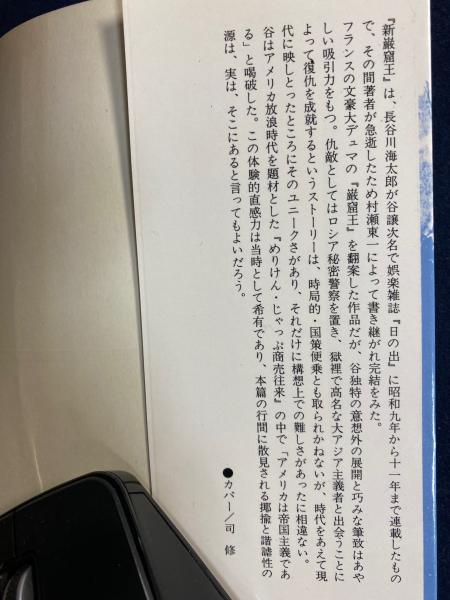 『新巌窟王』は、長谷川海太郎が谷譲次名で娯楽雑誌『日の出』に昭和九年から十一年まで連載したもの
で、その間著者が急逝したため村瀬東一によって書き継がれ完結をみた。
フランスの文豪大デュマの『巌窟王』を翻案した作品だが、谷独特の意想外の展開と巧みな筆致はあや
しい吸引力をもつ。仇敵としてはロシア秘密警察を置き、獄裡で高名な大アジア主義者と出会うことに
よって復仇を成就するというストーリーは、時局的・国策便乗とも取られかねないが、時代をあえて現
代に映しとったところにそのユニークさがあり、それだけに構想上での難しさがあったに相違ない。
谷はアメリカ放浪時代を題材とした『めりけん・じゃっぷ商売往来』の中で「アメリカは帝国主義であ
る」と喝破した。この体験的直感力は当時として希有であり、本篇の行間に散見される揶揄と諧謔性の
源は、実は、そこにあると言ってもよいだろう。
●カバー／司 修